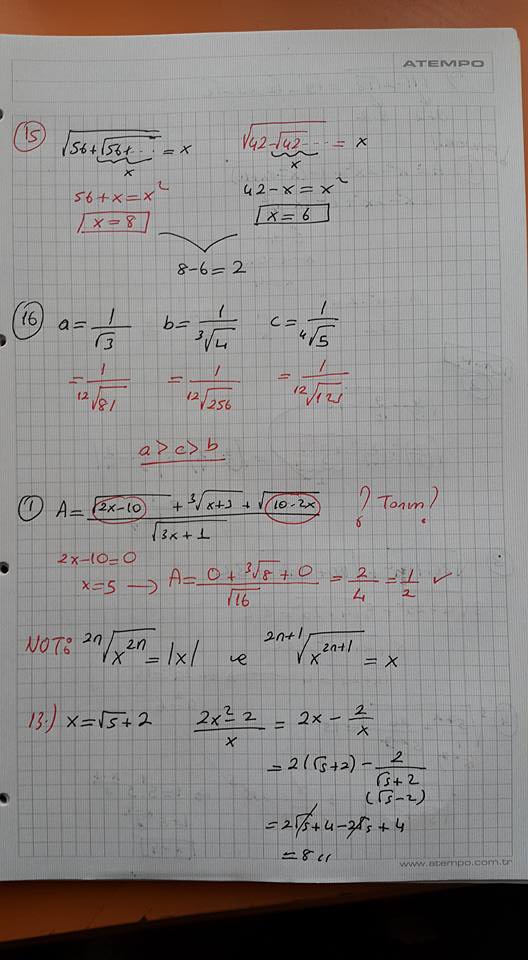 ATEMPO
15 √56+√56+... = x √42-√42-... = x
x x
56+x=x² 42-x=x²
x=8 x=6
8-6=2
16 a=1/√3 b=1/³√4 c=1/⁴√5
=1/¹²√81 =1/¹²√256 =1/¹²√125
a>c>b
1 A=(√2x-10 + ³√x+3 + √10-2x)/√3x+1 ?
2x-10=0
x=5 → A=(0+³√8+0)/√16 = 2/4 = 1/2 ✓
NOT: ²ⁿ√x²ⁿ = |x| ve ²ⁿ⁺¹√x²ⁿ⁺¹ = x
13.) x=√5+2 (2x²-2)/x = 2x - 2/x
=2(√5+2) - 2/(√5+2)
(√5-2)
=2√5+4-2√5+4
=8//
www.atempo.com.tr